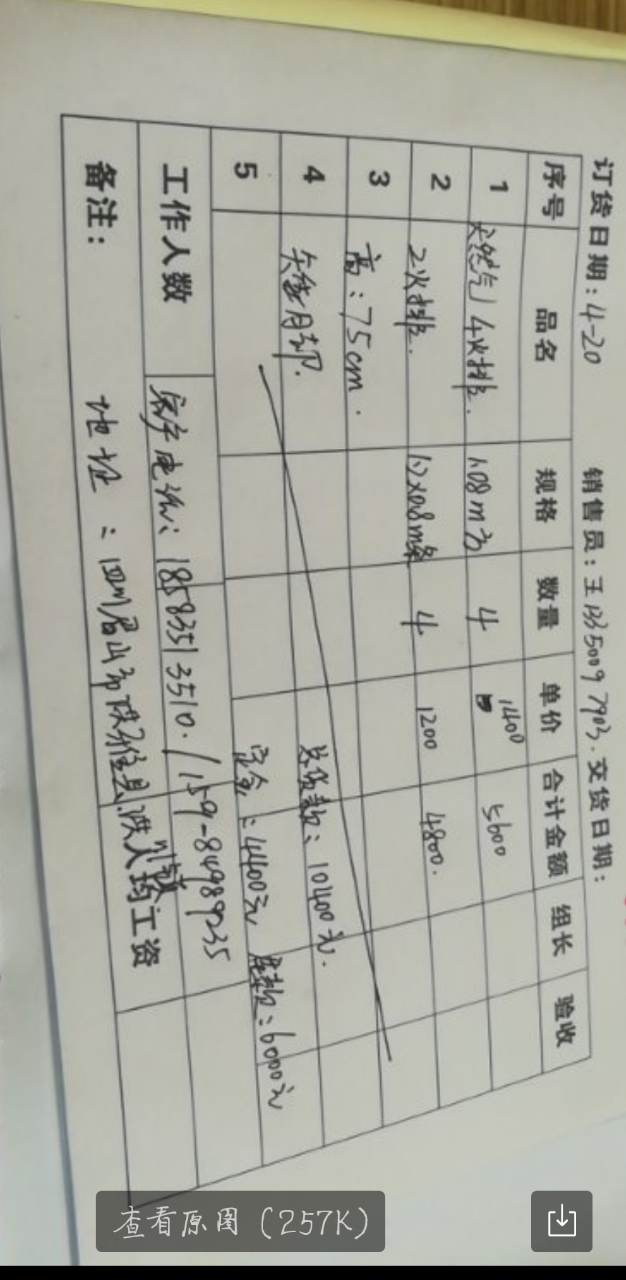 订货日期:4-20 销售员:王133 5009 7903. 交货日期:
序号 品名 规格 数量 单价 合计金额 组长 验收
1 天然气 4火排. 1.08m高 4 1400 5600
2 2火排. 4 1200 4800.
3 高:75cm.
4 总货款:10400元.
5 定金:4400元 尾款:6000元
工作人数 客户电话:18583513510. / 159-84989235 人均工资
备注: 地址:四川眉山市
查看原图(257K)